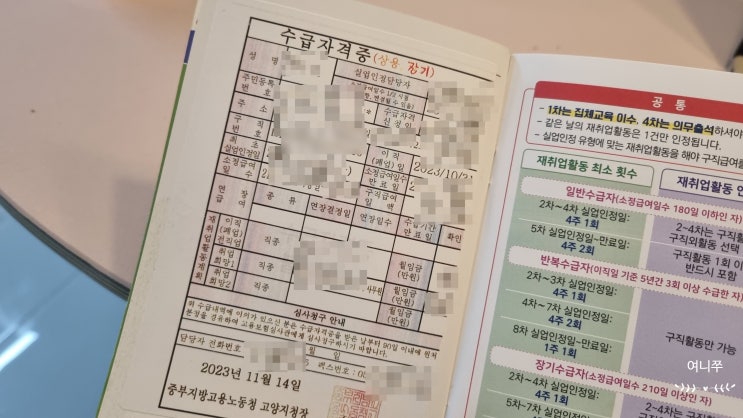 수급자격증(상용 장기)
성 명
실업인정담당자
주민등록
번 호
주 소
수급자격
신청일
구 직
번 호
최 초
실업인정일
이 직
(폐업)일
2023/10/31
소정급여
일 수
소정급여일수
만 료 일
구직급여
일 액
연 장
급 여
종 류
연장결정일
연장일수
수급기간
만 료 일
확인
재취업활동계획
이직
(폐업)
전직업
직종
월임금
(만원)
취업
희망1
직종
월임금
(만원)
취업
희망2
직종
월임금
(만원)
심사청구 안내
위 수급내역에 이의가 있으신 분은 수급자격증을 받은 날부터 90일 이내에 원처
분청을 경유하여 고용보험심사관에게 심사청구하시기 바랍니다.
담당자 전화번호
팩스번호 : 05
2023년 11월 14일
중부지방고용노동청 고양지청장
공 통
- 1차는 집체교육 이수, 4차는 의무출석하셔야
- 같은 날의 재취업활동은 1건만 인정됩니다.
- 실업인정 유형에 맞는 재취업활동을 해야 구직급여를
재취업활동 최소 횟수
재취업활동 인
일반수급자(소정급여일수 180일 이하인 자)
2차~4차 실업인정일:
4주 1회
5차 실업인정일~만료일:
4주 2회
2~4차는 구직활
구직외활동 선택
구직활동 1회 이
반드시 포함
반복수급자(이직일 기준 5년간 3회 이상 수급한 자)
2차~3차 실업인정일:
4주 1회
4차~7차 실업인정일:
4주 2회
8차 실업인정일~만료일:
1주 1회
구직활동만 가능
장기수급자(소정급여일수 210일 이상인 자)
2차~4차 실업인정일:
4주 1회
5차~7차 실업인정일:
2~4차는 구직활
여니쭈